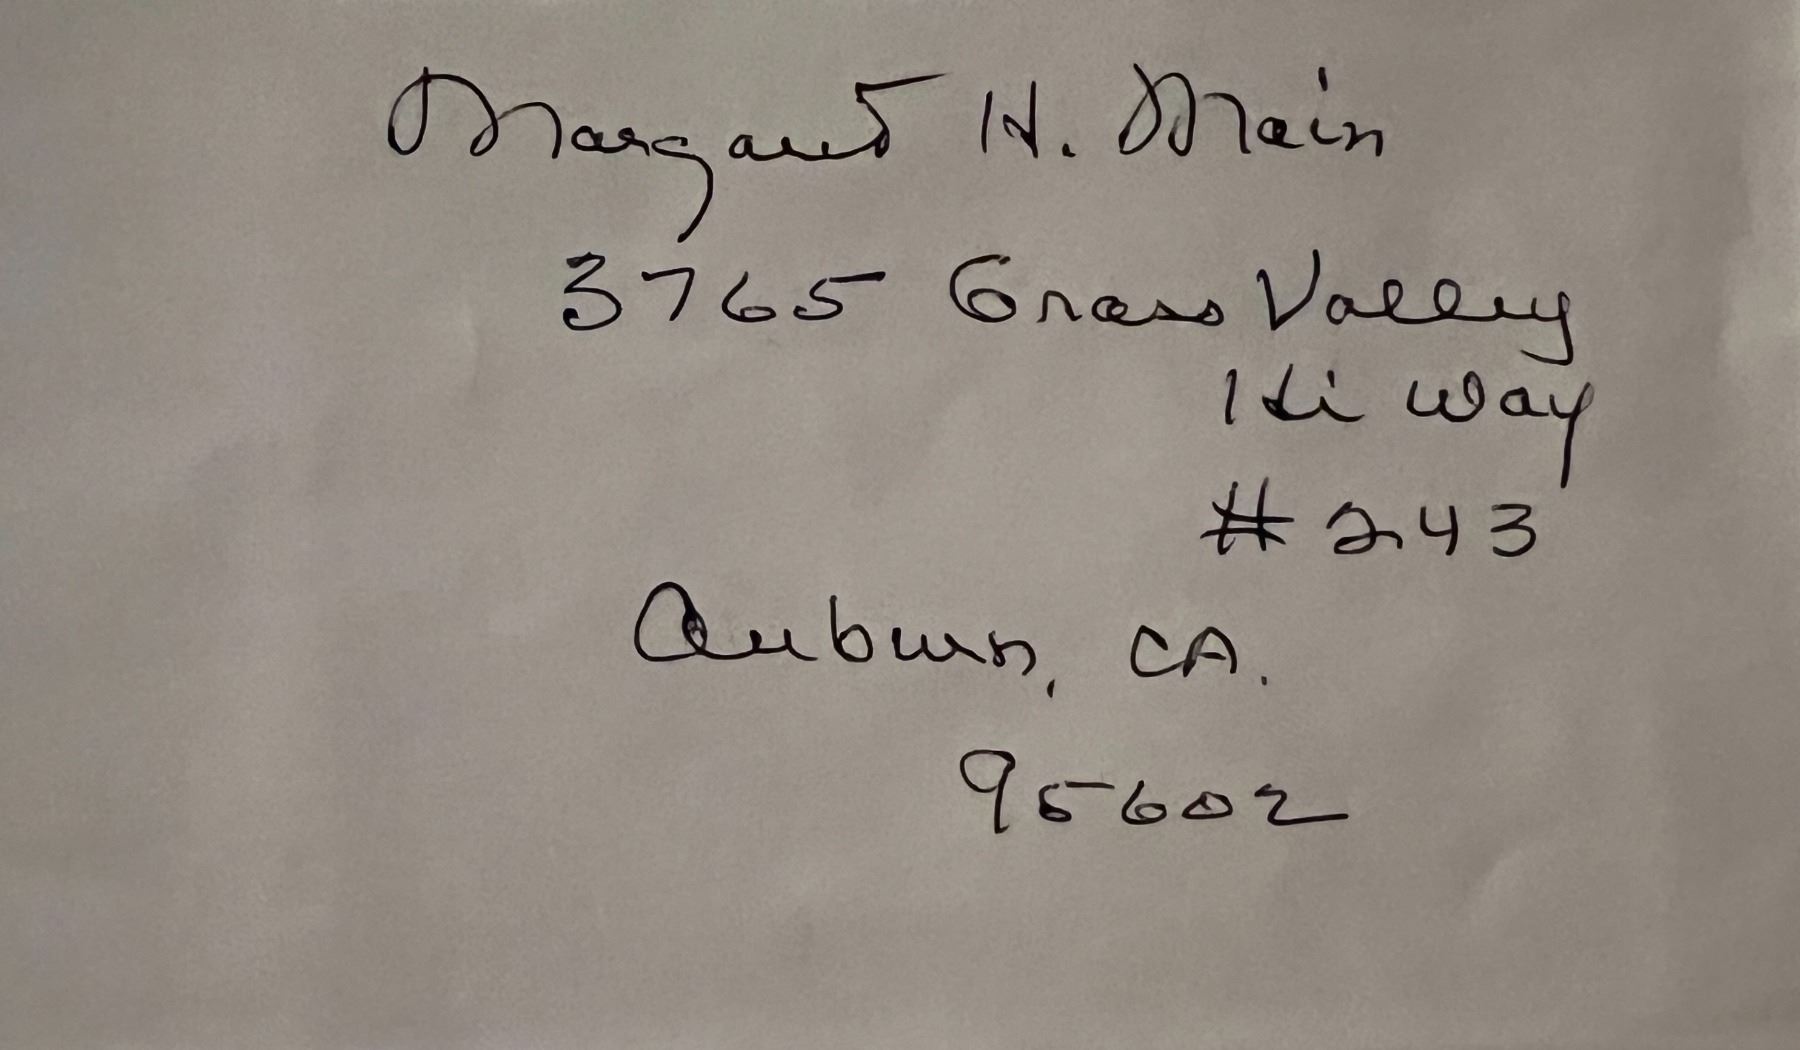 Margaret H. Main
3765 Grass Valley
Hi Way
# 243
Auburn, CA.
95602